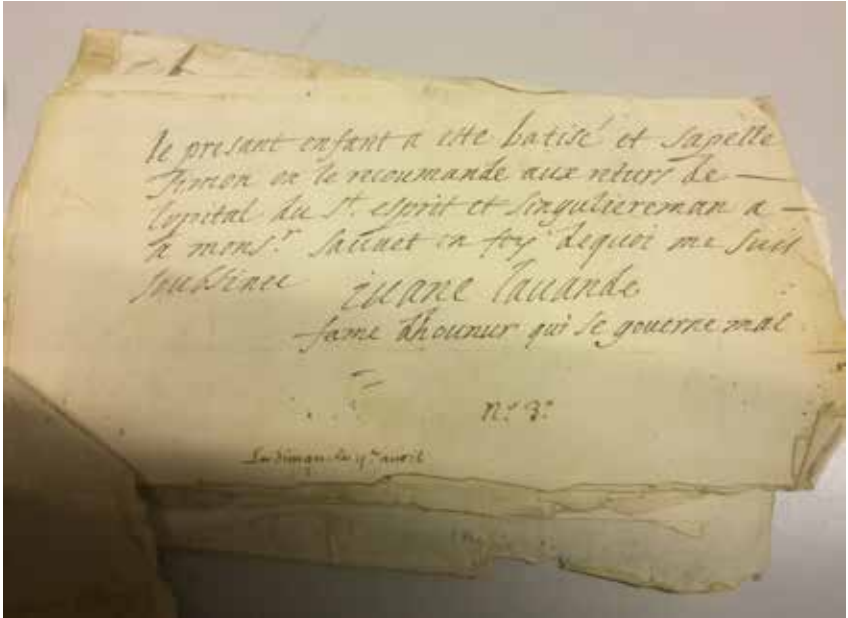 le presant enfant a este batisé et sapelle
Simon on le recoumande aux
lopital du St. esprit et singuliereman a
a monsr. Sauvet en foy dequoi me suis
soussinee
lauande
fame dhounur qui se gouerne mal
N.° 3.°
avril